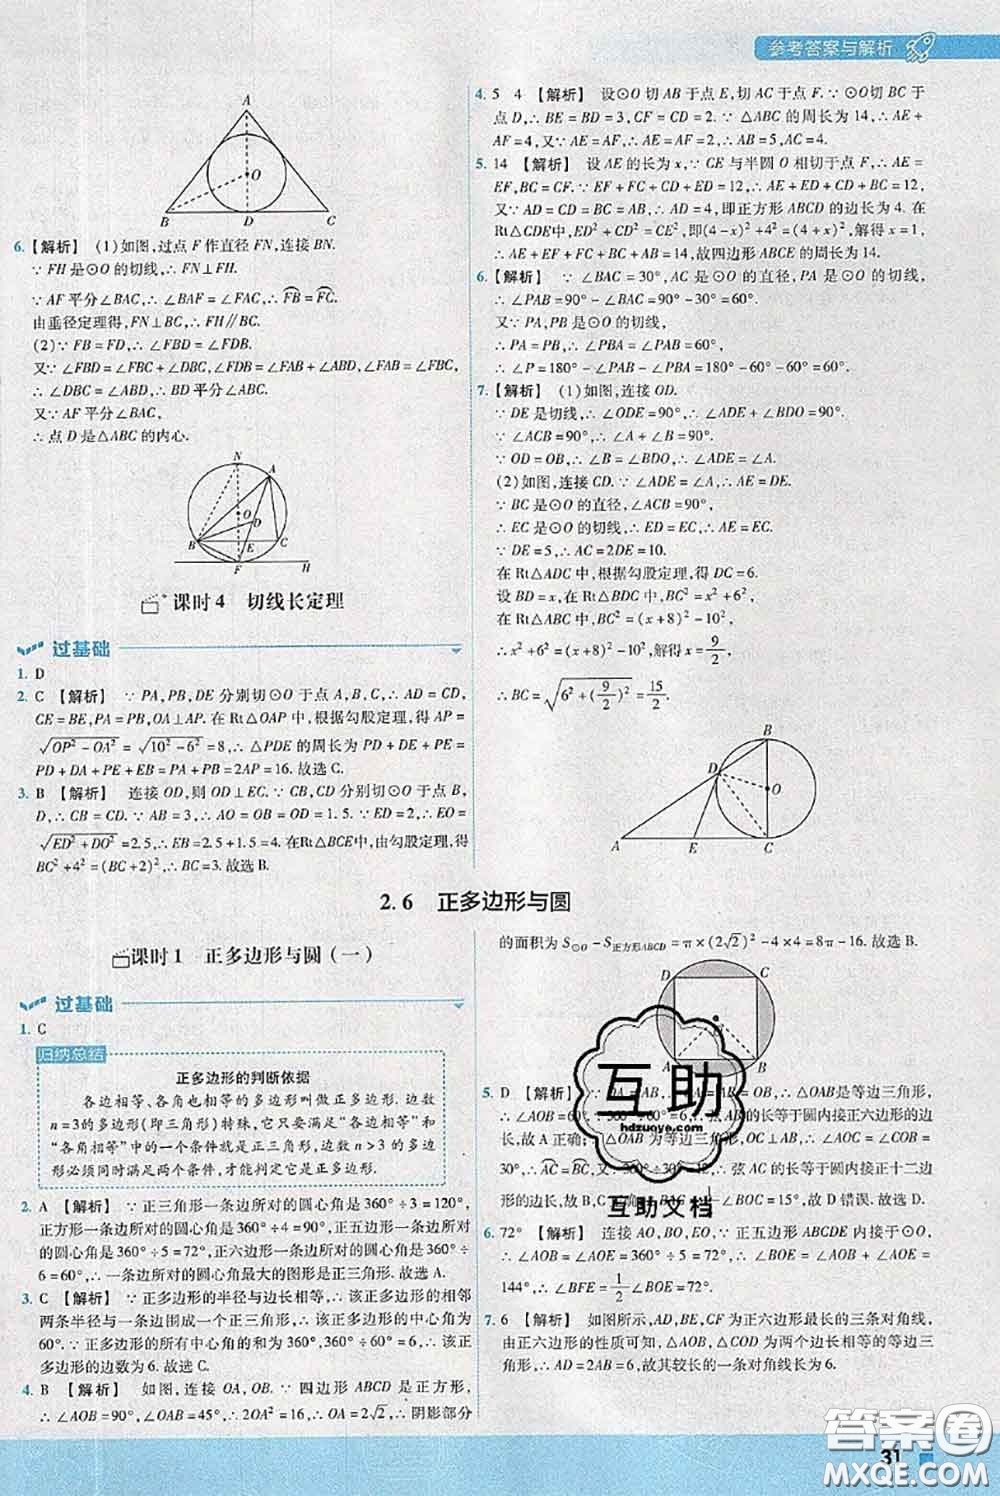 参考答案与解析
A
O
B D C
6.【解析】 (1)如图,过点 F 作直径 FN,连接 BN.
∵ FH 是⊙O 的切线,∴ FN⊥FH.
∵ AF 平分∠BAC,∴ ∠BAF = ∠FAC,∴ FB = FC.
由垂径定理得,FN⊥BC,∴ FH∥BC.
(2)∵ FB = FD,∴ ∠FBD = ∠FDB.
又∵ ∠FBD = ∠FBC+∠DBC,∠FDB = ∠FAB+∠ABD,∠FAC=∠FAB=∠FBC,
∴ ∠DBC = ∠ABD,∴ BD 平分∠ABC.
又∵ AF 平分∠BAC,
∴ 点 D 是△ABC 的内心.
N
A
O
D
B E C
F H
课时 4 切线长定理
过基础
1. D
2. C 【解析】 ∵ PA,PB,DE 分别切⊙O 于点 A,B,C,∴ AD = CD,
CE = BE,PA = PB,OA⊥AP. 在 Rt△OAP 中,根据勾股定理,得 AP =
√(OP²-OA²) = √(10²-6²) = 8,∴ △PDE 的周长为 PD + DE + PE =
PD+DA+EB+PE=PA+PB=2AP=16. 故选 C.
3. B 【解析】 连接 OD,则 OD⊥EC. ∵ CB,CD 分别切⊙O 于点 B,
D,∴ CB = CD. ∵ AB = 3,∴ AO = OB = OD = 1.5. ∵ ED = 2,∴ EO =
√(ED²+DO²) =2.5,∴ EB=2.5+1.5=4. 在Rt△BCE中,由勾股定理,得
BC²+4²=(BC+2)²,∴ BC=3. 故选 B.
4. 5 4 【解析】 设⊙O 切 AB 于点 E,切 AC 于点 F. ∵⊙O 切 BC 于
点 D,∴ BE = BD = 3,CF = CD = 2. ∵ △ABC 的周长为 14,∴ AE +
AF = 4,又∵ AE = AF,∴ AE = AF = 2,∴ AB = 5,AC = 4.
5. 14 【解析】 设 AE 的长为 x,∵ CE 与半圆 O 相切于点 F,∴ AE =
EF,BC=CF. ∵ EF + FC + CD + ED = 12,∴ AE + CD + BC + ED = 12,
又∵ AD = CD = BC = AB,∴ AD = 4,即正方形 ABCD 的边长为 4. 在
Rt△CDE中,ED² + CD² = CE²,即(4-x)² + 4² = (4+x)²,解得 x = 1,
∴ AE + EF + FC + BC + AB = 14,故四边形 ABCE 的周长为 14.
6.【解析】 ∵ ∠BAC = 30°,AC 是⊙O 的直径,PA 是⊙O 的切线,
∴ ∠PAB = 90° - ∠BAC = 90° - 30° = 60°.
又∵ PA,PB 是⊙O 的切线,
∴ PA = PB,∴ ∠PBA = ∠PAB = 60°,
∴ ∠P = 180° - ∠PAB - ∠PBA = 180° - 60° - 60° = 60°.
7.【解析】 (1)如图,连接 OD.
∵ DE 是切线,∴ ∠ODE = 90°,∴ ∠ADE + ∠BDO = 90°.
∵ ∠ACB = 90°,∴ ∠A + ∠B = 90°.
∵ OD = OB,∴ ∠B = ∠BDO,∴ ∠ADE = ∠A.
(2)如图,连接 CD. ∵ ∠ADE = ∠A,∴ AE = DE.
∵ BC 是⊙O 的直径,∠ACB = 90°,
∴ EC 是⊙O 的切线,∴ ED = EC,∴ AE = EC.
∵ DE = 5,∴ AC = 2DE = 10.
在 Rt△ADC 中,根据勾股定理,得 DC = 6.
设 BD = x,在 Rt△BDC 中,BC² = x² + 6²,
在 Rt△ABC 中,BC² = (x+8)² - 10²,
∴ x² + 6² = (x+8)² - 10²,解得 x = 9/2,
∴ BC = √(6² + (9/2)²) = 15/2.
B
D
O
A E C
2.6 正多边形与圆
课时 1 正多边形与圆(一)
过基础
1. C
归纳总结
正多边形的判断依据
各边相等、各角也相等的多边形叫做正多边形. 边数
n = 3的多边形(即三角形)特殊,它只要满足“各边相等”和
“各角相等”中的一个条件就是正三角形,边数 n > 3 的多边
形必须同时满足两个条件,才能判定它是正多边形.
2. A 【解析】 ∵ 正三角形一条边所对的圆心角是 360° ÷ 3 = 120°,
正方形一条边所对的圆心角是 360° ÷ 4 = 90°,正五边形一条边所对
的圆心角是 360° ÷ 5 = 72°,正六边形一条边所对的圆心角是 360° ÷
6 = 60°,∴ 一条边所对的圆心角最大的图形是正三角形. 故选 A.
3. C 【解析】 ∵ 正多边形的半径与边长相等,∴ 该正多边形的相邻
两条半径与正多边形的一边围成一个正三角形,∴ 中心角为
60°. ∵ 正多边形的所有中心角的和为 360°,360° ÷ 60° = 6,∴ 该正
多边形的边数为 6. 故选 C.
4. B 【解析】 如图,连接 OA,OB. ∵ 四边形 ABCD 是正方形,
∴ ∠AOB = 90°,∠OAB = 45°,∴ 2OA² = 16,∴ OA = 2√2,∴ 阴影部分
的面积为 S⊙O - S正方形ABCD = π × (2√2)² - 4 × 4 = 8π - 16. 故选 B.
D C
A B
5. D 【解析】
OB,∴ △OAB是等边三角形,
∴ ∠AOB = 60°
的长等于圆内接正六边形的边
长,故 A 正确;
OC⊥AB,∴ ∠AOC = ∠BOC =
30°,∴ AC = BC,
∴ 弦 AC 的长等于圆内接正十二边
形的边长,故 B,C
∠BOC = 15°,故 D 错误. 故选 D.
6. 72° 【解析】 连接 AO,BO,EO,∵ 正五边形 ABCDE 内接于⊙O,
∴ ∠AOB = ∠AOE = 360° ÷ 5 = 72°,∴ ∠BOE = ∠AOB + ∠AOE =
144°,∴ ∠BFE = 1/2 ∠BOE = 72°.
7. 6 【解析】 如图所示,AD,BE,CF 为正六边形最长的三条对角线,
由正六边形的性质可知,△AOB,△COD 为两个边长相等的等边三角
形,∴ AD = 2AB = 6,故其较长的一条对角线长为 6.
互助
hdzuoye.com
互助文档
31
答案圈
MXQE.COM